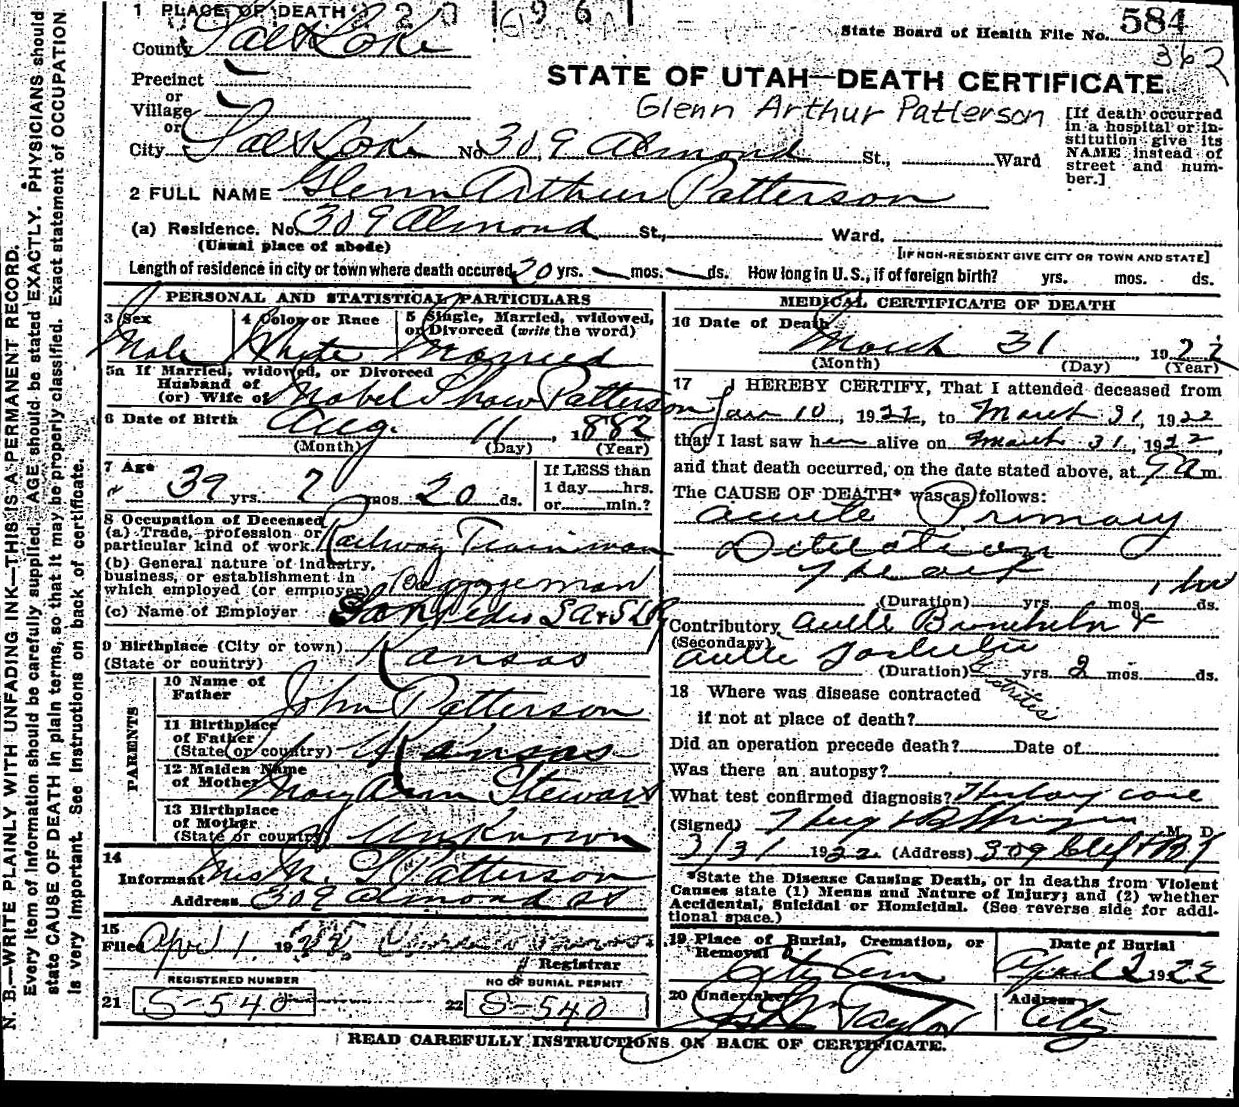 1 PLACE OF DEATH
State Board of Health File No. 584
362
County Salt Lake
Precinct
STATE OF UTAH—DEATH CERTIFICATE.
or
Village
Glenn Arthur Patterson
[If death occurred in a hospital or institution give its NAME instead of street and number.]
or
City Salt Lake No. 309 Almond St., Ward
2 FULL NAME Glenn Arthur Patterson
(a) Residence. No. 309 Almond St., Ward.
(Usual place of abode) [IF NON-RESIDENT GIVE CITY OR TOWN AND STATE]
Length of residence in city or town where death occured 20 yrs. mos. ds. How long in U.S., if of foreign birth? yrs. mos. ds.
PERSONAL AND STATISTICAL PARTICULARS
3 Sex 4 Color or Race 5 Single, Married, widowed, or Divorced (write the word)
Male White Married
5a If Married, widowed, or Divorced
Husband of
(or) Wife of Mabel Shaw Patterson
6 Date of Birth Aug. 11, 1882
(Month) (Day) (Year)
7 Age 39 yrs. 7 mos. 20 ds.
If LESS than
1 day hrs.
or min.?
8 Occupation of Deceased
(a) Trade, profession or
particular kind of work. Railway Trainman
(b) General nature of industry,
business, or establishment in
which employed (or employer) Baggageman
(c) Name of Employer San Pedro LA & SL Ry
9 Birthplace (City or town)
(State or country) Kansas
PARENTS
10 Name of
Father John Patterson
11 Birthplace
of Father
(State or country) Kansas
12 Maiden Name
of Mother Mary Ann Stewart
13 Birthplace
of Mother
(State or country) Unknown
14
Informant Mrs M. S Patterson
Address 309 Almond St
15
Filed April 1, 1922
Registrar
REGISTERED NUMBER NO OF BURIAL PERMIT
21 S-540 22 S-540
MEDICAL CERTIFICATE OF DEATH
16 Date of Death
March 31, 1922
(Month) (Day) (Year)
17 I HEREBY CERTIFY, That I attended deceased from
Jan 10, 1922, to March 31, 1922
that I last saw him alive on March 31, 1922,
and that death occurred, on the date stated above, at 9 a m.
The CAUSE OF DEATH* was as follows:
Acute Primary
Dilatation
of heart
(Duration) yrs. mos. ds.
Contributory Acute
(Secondary)
Acute
(Duration) yrs. 2 mos. ds.
18 Where was disease contracted
if not at place of death?
Did an operation precede death? Date of
Was there an autopsy?
What test confirmed diagnosis? History case
(Signed) M D
3/31 1922 (Address) 309
*State the Disease Causing Death, or in deaths from Violent
Causes state (1) Means and Nature of Injury; and (2) whether
Accidental, Suicidal or Homicidal. (See reverse side for addi-
tional space.)
19 Place of Burial, Cremation, or Removal Date of Burial
City Cem April 2 1922
20 Undertaker Address
Taylor City
READ CAREFULLY INSTRUCTIONS ON BACK OF CERTIFICATE.
N. B.—WRITE PLAINLY WITH UNFADING INK—THIS IS A PERMANENT RECORD.
Every item of information should be carefully supplied. AGE should be stated EXACTLY. PHYSICIANS should
state CAUSE OF DEATH in plain terms, so that it may be properly classified. Exact statement of OCCUPATION
is very important. See Instructions on back of certificate.